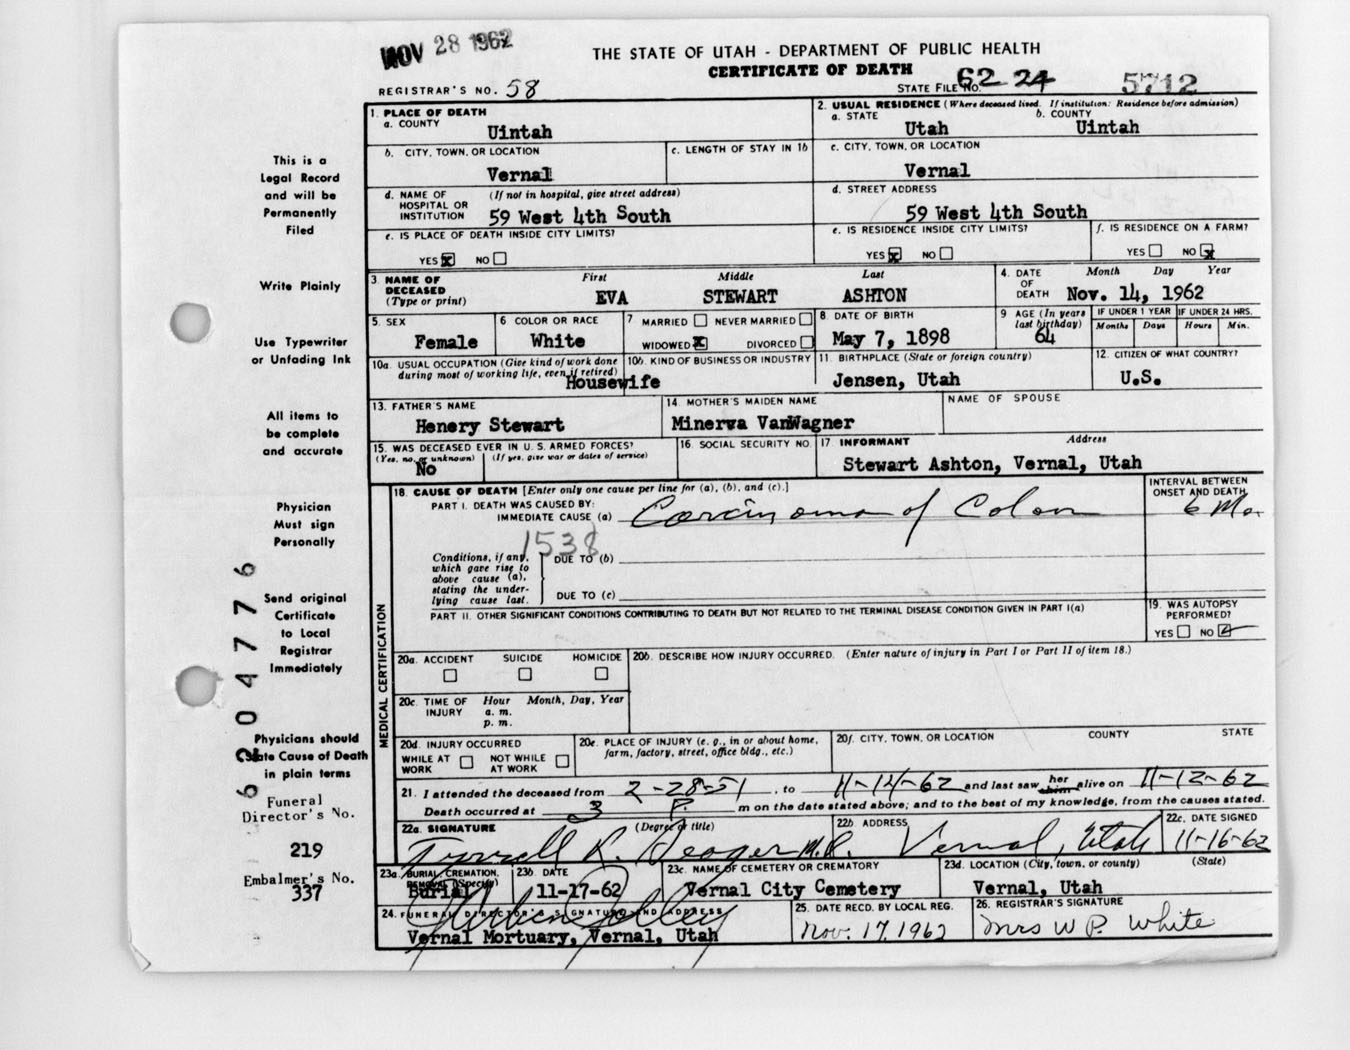 NOV 28 1962
THE STATE OF UTAH - DEPARTMENT OF PUBLIC HEALTH
CERTIFICATE OF DEATH
REGISTRAR'S NO. 58
STATE FILE NO. 62 24 5712
This is a
Legal Record
and will be
Permanently
Filed
Write Plainly
Use Typewriter
or Unfading Ink
All items to
be complete
and accurate
Physician
Must sign
Personally
Send original
Certificate
to Local
Registrar
Immediately
Physicians should
State Cause of Death
in plain terms
Funeral
Director's No.
219
Embalmer's No.
337
1. PLACE OF DEATH
a. COUNTY
Uintah
2. USUAL RESIDENCE (Where deceased lived. If institution: Residence before admission)
a. STATE b. COUNTY
Utah Uintah
b. CITY, TOWN, OR LOCATION
Vernal
c. LENGTH OF STAY IN 1b
c. CITY, TOWN, OR LOCATION
Vernal
d. NAME OF HOSPITAL OR INSTITUTION
(If not in hospital, give street address)
59 West 4th South
d. STREET ADDRESS
59 West 4th South
e. IS PLACE OF DEATH INSIDE CITY LIMITS?
YES x NO
e. IS RESIDENCE INSIDE CITY LIMITS?
YES x NO
f. IS RESIDENCE ON A FARM?
YES NO x
3. NAME OF DECEASED (Type or print)
First Middle Last
EVA STEWART ASHTON
4. DATE OF DEATH
Month Day Year
Nov. 14, 1962
5. SEX
Female
6 COLOR OR RACE
White
7 MARRIED NEVER MARRIED
WIDOWED x DIVORCED
8 DATE OF BIRTH
May 7, 1898
9 AGE (In years last birthday)
64
IF UNDER 1 YEAR IF UNDER 24 HRS.
Months Days Hours Min.
10a. USUAL OCCUPATION (Give kind of work done
during most of working life, even if retired)
Housewife
10b. KIND OF BUSINESS OR INDUSTRY
11. BIRTHPLACE (State or foreign country)
Jensen, Utah
12. CITIZEN OF WHAT COUNTRY?
U.S.
13. FATHER'S NAME
Henery Stewart
14. MOTHER'S MAIDEN NAME
Minerva VanWagner
NAME OF SPOUSE
15. WAS DECEASED EVER IN U. S. ARMED FORCES?
(Yes, no, or unknown) (If yes, give war or dates of service)
No
16. SOCIAL SECURITY NO.
17. INFORMANT Address
Stewart Ashton, Vernal, Utah
MEDICAL CERTIFICATION
18. CAUSE OF DEATH [Enter only one cause per line for (a), (b), and (c).]
INTERVAL BETWEEN
ONSET AND DEATH
PART I. DEATH WAS CAUSED BY:
IMMEDIATE CAUSE (a) Carcinoma of Colon 6 Mo.
1538
Conditions, if any,
which gave rise to
above cause (a),
stating the under-
lying cause last.
DUE TO (b)
DUE TO (c)
PART II. OTHER SIGNIFICANT CONDITIONS CONTRIBUTING TO DEATH BUT NOT RELATED TO THE TERMINAL DISEASE CONDITION GIVEN IN PART I(a)
19. WAS AUTOPSY
PERFORMED?
YES NO
20a. ACCIDENT SUICIDE HOMICIDE
20b. DESCRIBE HOW INJURY OCCURRED. (Enter nature of injury in Part I or Part II of item 18.)
20c. TIME OF INJURY
Hour Month, Day, Year
a. m.
p. m.
20d. INJURY OCCURRED
WHILE AT WORK NOT WHILE AT WORK
20e. PLACE OF INJURY (e. g., in or about home,
farm, factory, street, office bldg., etc.)
20f. CITY, TOWN, OR LOCATION COUNTY STATE
21. I attended the deceased from 2-28-51, to 11-14-62 and last saw her him alive on 11-12-62
Death occurred at 3 P. m on the date stated above; and to the best of my knowledge, from the causes stated.
22a. SIGNATURE (Degree or title)
Tyrrell R. Seager M.D.
22b ADDRESS
Vernal, Utah
22c. DATE SIGNED
11-16-62
23a. BURIAL, CREMATION,
REMOVAL (Specify)
Burial
23b. DATE
11-17-62
23c. NAME OF CEMETERY OR CREMATORY
Vernal City Cemetery
23d. LOCATION (City, town, or county) (State)
Vernal, Utah
24. FUNERAL DIRECTOR'S SIGNATURE AND ADDRESS
Vernal Mortuary, Vernal, Utah
25. DATE RECD. BY LOCAL REG.
Nov. 17, 1962
26. REGISTRAR'S SIGNATURE
Mrs W P. White